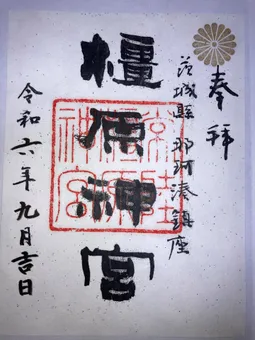 奉拝
茨城縣 那珂湊鎮座
橿原神宮
令和六年九月吉日